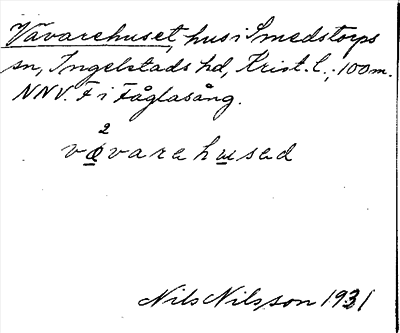 Vävarehuset, hus i Smedstorps
sn, Ingelstads hd, Krist. l.; 100 m.
NNV. F i Fåglasång.
vø²varehusad
Nils Nilsson 1931